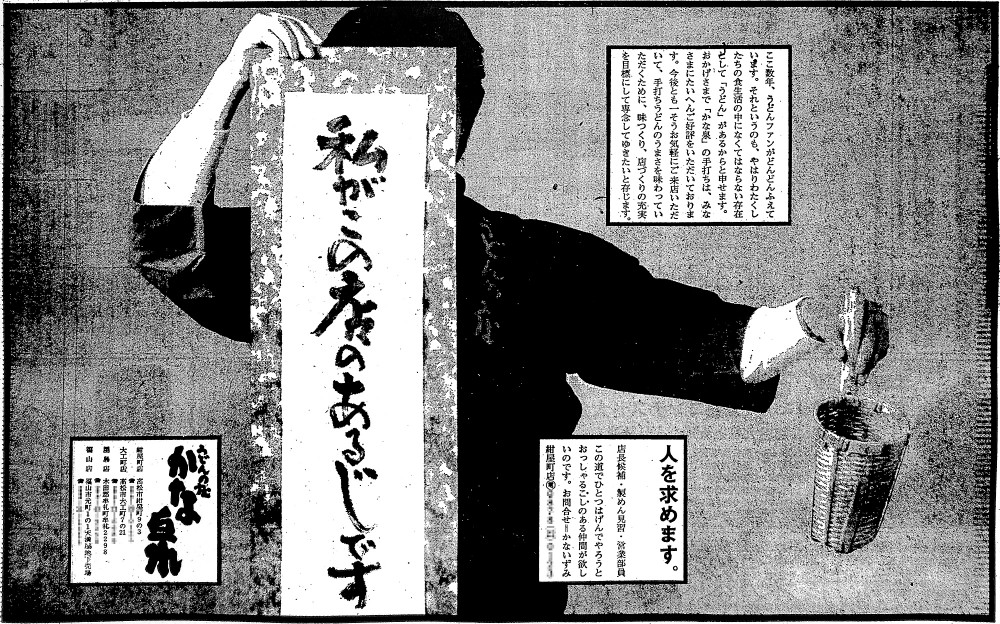 ここ数年、うどんファンがどんどんふえて
います。それというのも、やはりわたくし
たちの食生活の中になくてはならない存在
として「うどん」があるからと申せます。
おかげさまで「かな泉」の手打ちは、みな
さまにたいへんご好評をいただいておりま
す。今後とも一そうお気軽にご来店いただ
いて、手打ちうどんのうまさを味わってい
ただくために、味つくり、店づくりの充実
を目標にして専念してゆきたいと存じます。
私がこの店のあるじです
人を求めます。
店長候補・製めん見習・営業部員
この道でひとつはげんでやろうと
おっしゃるこしのある仲間が欲し
いのです。お問合せ=かないずみ
紺屋町店
うどんの
かな泉
紺屋町店 高松市紺屋町9の3
大工町店 高松市大工町7の21
屋島店 木田郡牟礼町牟礼2298
福山店 福山市元町1の1天満屋地下売場